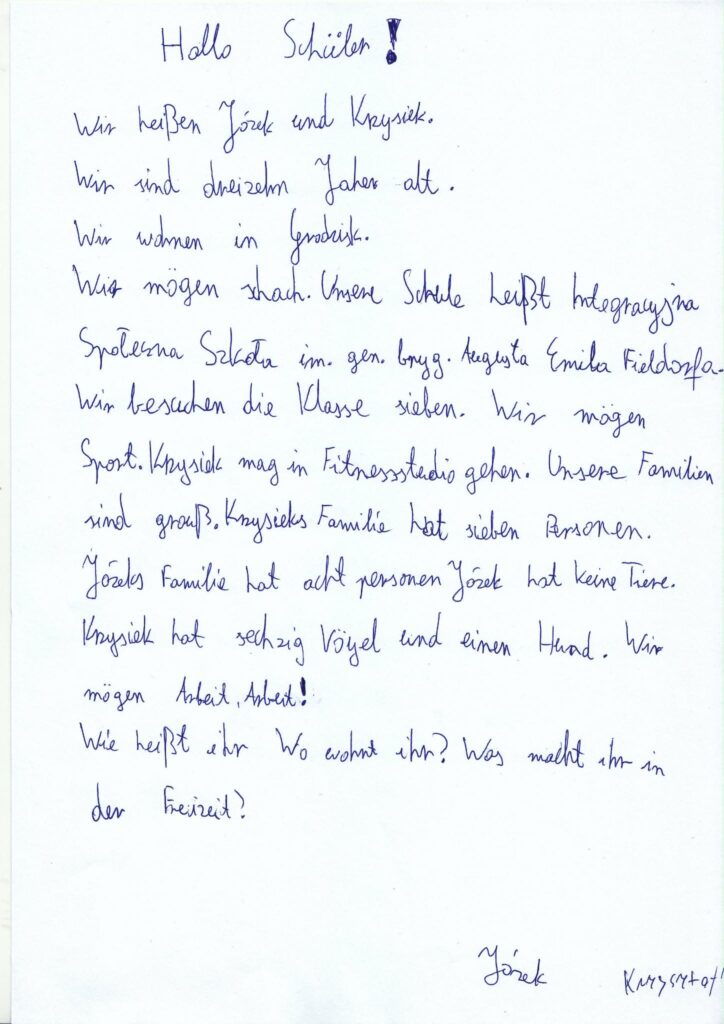 Hallo Schüler!
Wir heißen Józek und Krzysiek.
Wir sind dreizehn Jaher alt.
Wir wohnen in Grodzisk.
Wir mögen schach. Unsere Schule heißt Integracyjna
Społeczna Szkoła im. gen. bryg. Augusta Emila Fieldorfa.
Wir besuchen die Klasse sieben. Wir mögen
Sport. Krzysiek mag in Fitnessstudio gehen. Unsere Familien
sind grouß. Krzysieks Familie hat sieben Personen.
Józeks Familie hat acht personen Józek hat keine Tiere.
Krzysiek hat sechzig Vögel und einen Hund. Wir
mögen Arbeit, Arbeit!
Wie heißt ihr Wo wohnt ihr? Was macht ihr in
der Freizeit?
Józek Krzysztof